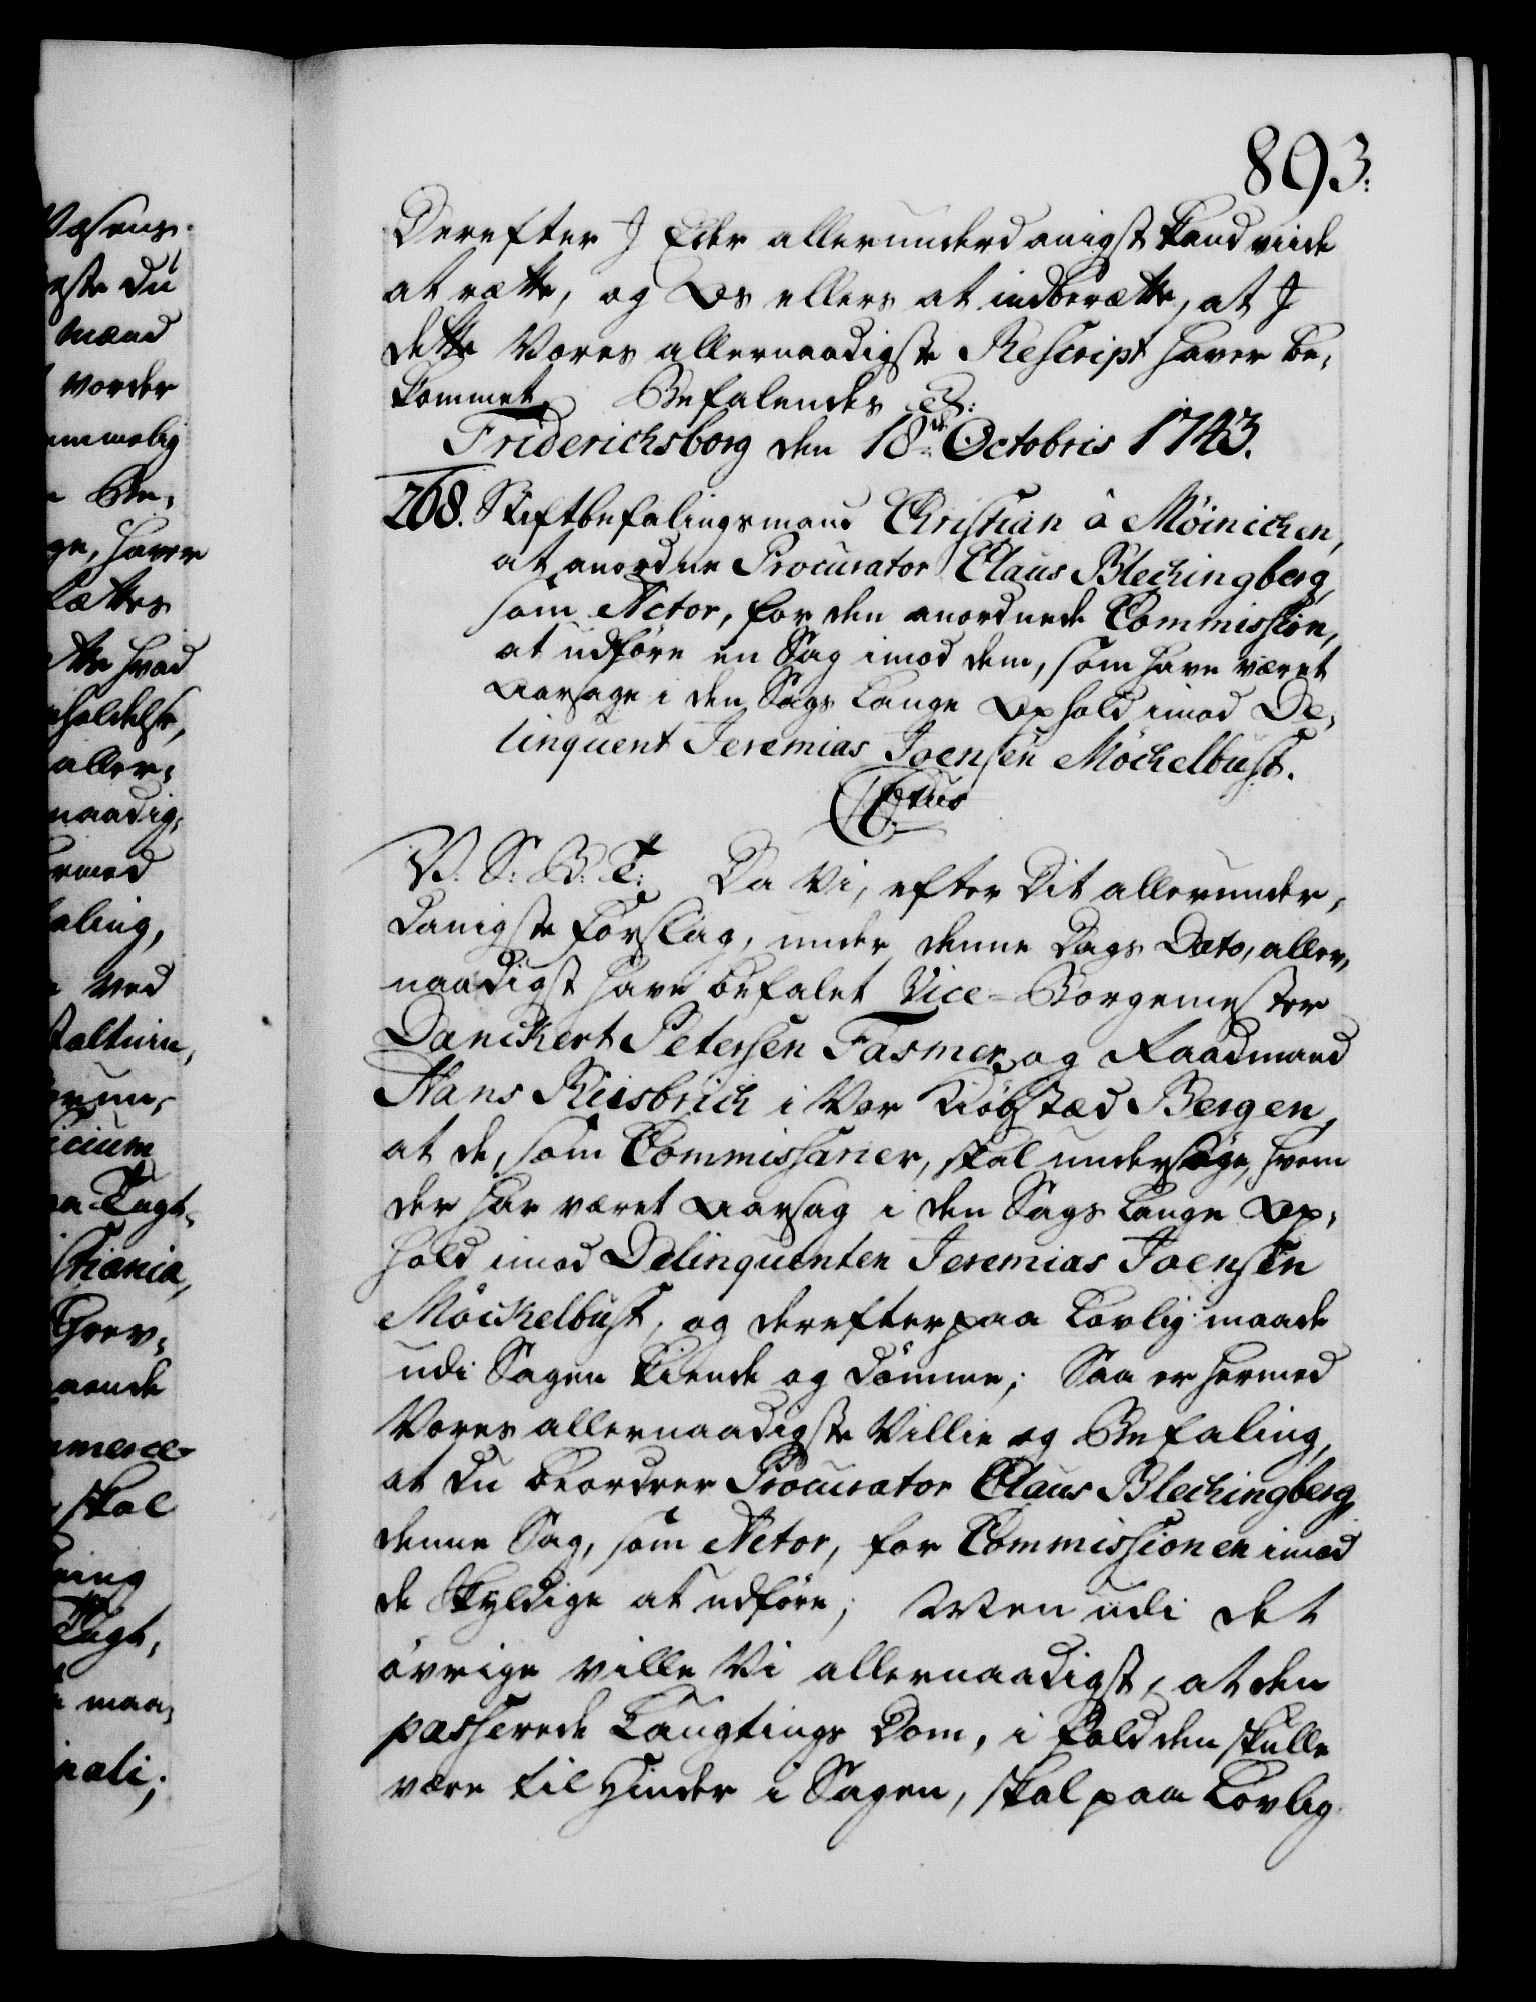 893.
Derefter I Eder allerunderdanigst kand viide
at rætte, og Os ellers at indberætte, at I
dette Vores allernaadigste Rescript haver be,
kommet. Befalendes &:
Friderichsborg den 18de Octobris 1743.
268. Stiftbefalingsmand Christian á Möinichen,
at anordne Procurator Claus Blechingberg,
som Actor, for den anordnede Commission,
at udföre en Sag imod dem, som have været
Aarsage i den Sags lange Ophold imod De,
linquent Jeremias Joensen Möckelbust.
C 6tus
V. S: G: T: Da Vi, efter Dit allerunder,
danigste Forslag, under denne Dags Dato, aller,
naadigst have befalet Vice-Borgemester
Danckert Petersen Fasmer, og Raadmand
Hans Riisbrich i Vor Kiöbstæd Bergen,
at de, som Commissarier, skal undersöge, hvem
der har været Aarsag i den Sags lange Op,
hold imod Delinquenten Jeremias Joensen
Möckelbust, og derefter paa Lovlig maade
udi Sagen kiende og dömme; Saa er hermed
Vores allernaadigste Villie og Befaling,
at du beordrer Procurator Claus Blechingberg,
denne Sag, som Actor, for Commissionen imod
de Skyldige at udföre; Men udi det
övrige ville Vi allernaadigst, at den
passerede Laugtings Dom, i fald den skulle
være til Hinder i Sagen, skal paa Lovlig